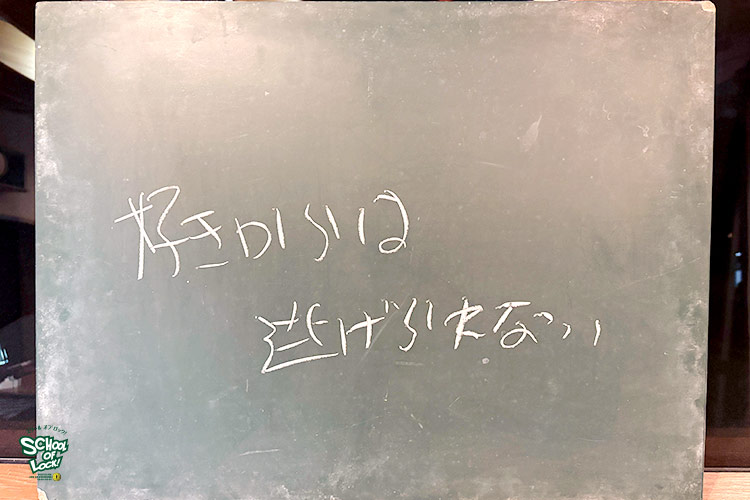 好きからは
逃げられない
SCHOOL
OF
LOCK!